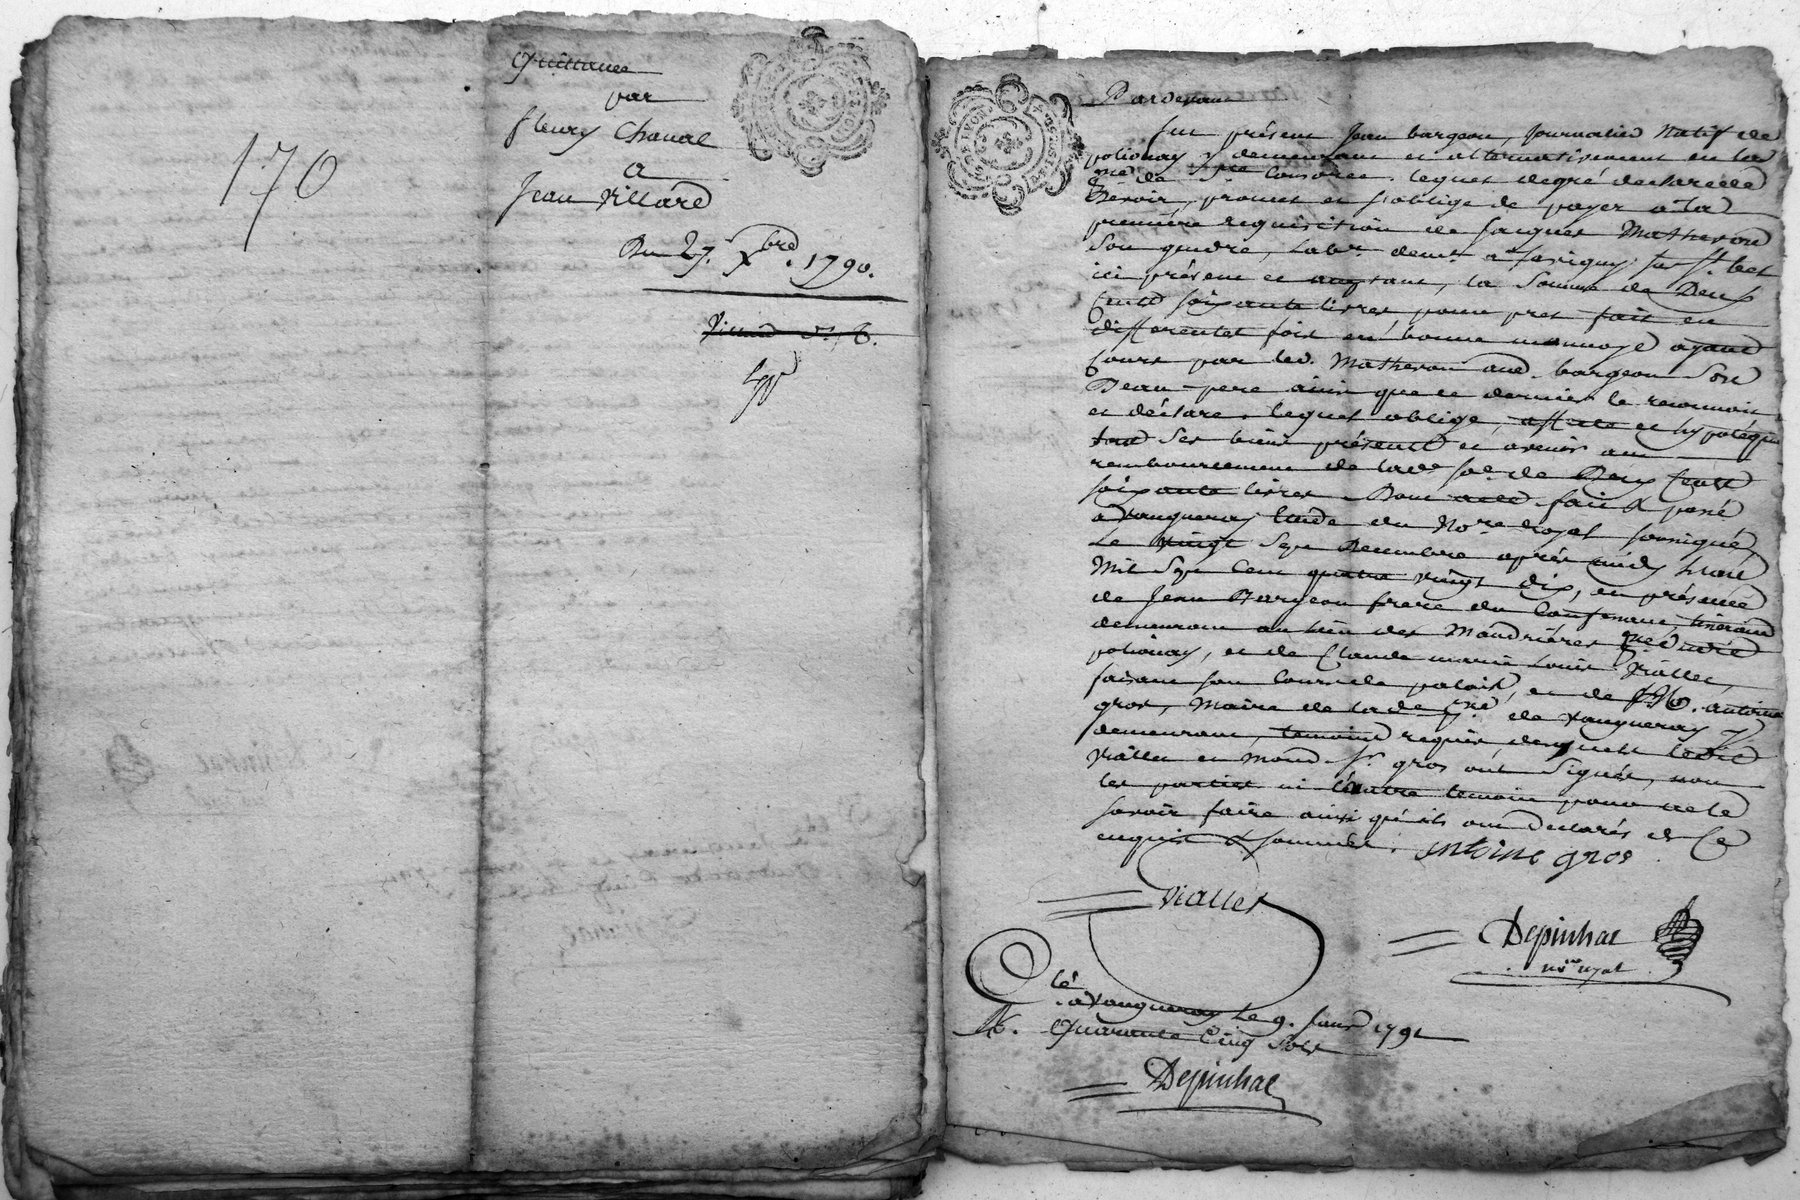 170
Quittance
par
fleury Chanal
a
Jean Villard
Du 27. Xbre. 1790.
Pardevant
fut présent Jean bargeon, Journalier natif de
polionay y demeurant et alternativement en la
de Ste Consorce. lequel degré declare de
Devoir, promet et s'oblige de payer a la
première requisition de Jacques Matheron
son gendre, Labr. demt. a
ici présent et acceptant, la somme de Deux
Cents soixante livres pour pret fait en
differentes fois en bonne monnoye ayant
Cours par led. Matheron aud. bargeon son
Beau-pere ainsi que ce dernier le reconnoit
et déclare. lequel oblige, affecte et hypotéque
tous ses biens présents et avenir au
remboursement de lade. se. de Deux Cents
soixante livres Dont acte fait & passé
a Vaugneray Etude du Nore. royal soussigné,
Le vingt Sept Decembre après midy
Mil Sept Cent quatre vingt dix, en présence
de Jean Bargeon frere du Confessant, tisserand
demeurant au lieu des Mandrières
polionay, et de Claude marie Louis Viallet,
faisant son Cours de palais, et de antoine
gros, Maire de lade. de Vaugneray y
demeurant, temoins requis, desquels ledit
Viallet et mond. Sr. gros ont Signés, non
les parties ni l'autre temoin pour ne le
savoir faire ainsi qu'ils ont declarés de Ce
enquis & sommés.
antoine gros
Viallet
Depinhac
nore. royal
Clé
a Vaugneray Le 9. Janv. 1791
R. Quarante Cinq Sols
Depinhac